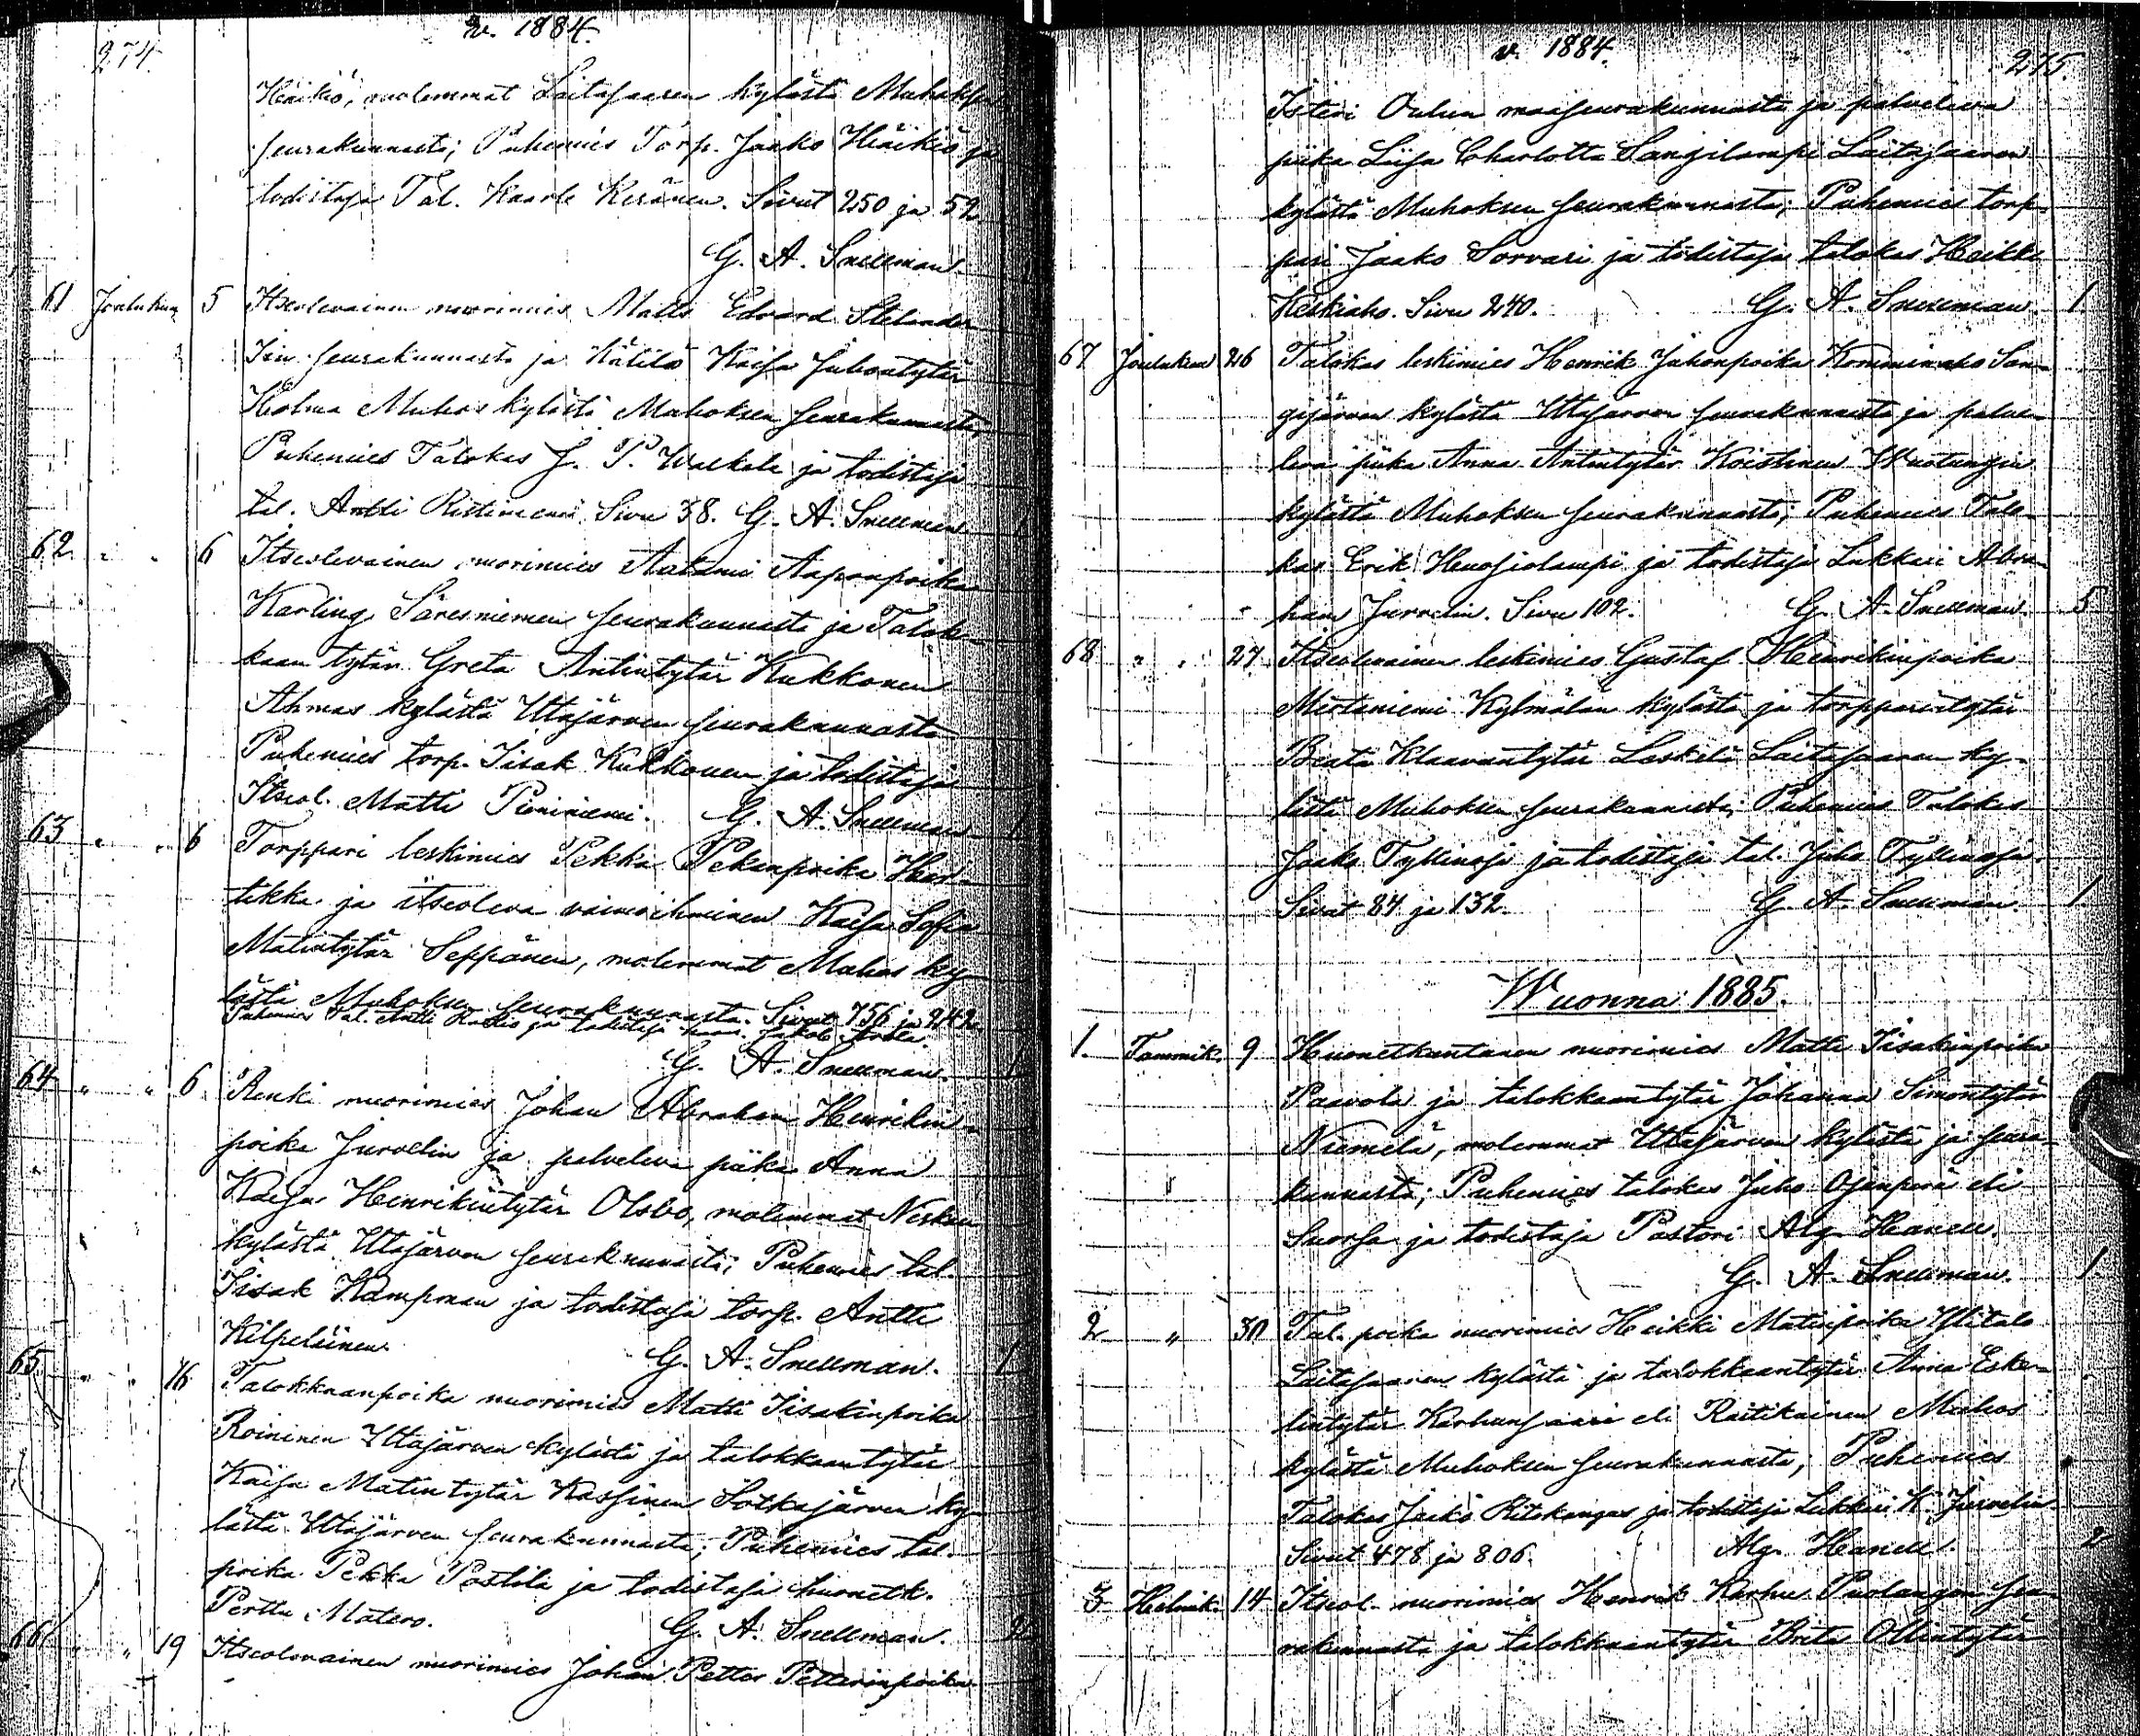 274.
v. 1884.
Häikiö, molemmat Laitasaaren kylästä Muhoksen
seurakunnasta; Puhemies Torp. Jaako Häikiö ja
todistaja Tal. Kaarle Keränen. Sivut 250 ja 52
G. A. Snellman.
61 Joulukuu 5 Itseolevainen nuorimies Matts Edvard Stelander
Iin seurakunnasta ja Kätilö Kaisa Juhontytär
Holma Muhos kylästä Muhoksen seurakunnasta,
Puhemies Talokas J. P. Walkola ja todistaja
tal. Antti Ristiniemi. Sivu 38. G. A. Snellman 1
62 " " 6 Itseolevainen nuorimies Aatami Aaponpoika
Karling Säresniemen seurakunnasta ja Talok-
kaan tytär Greta Antintytär Kukkonen
Ahmas kylästä Utajärven seurakunnasta
Puhemies torp. Iisak Kukkonen ja todistaja
Itseol. Matti Pieniniemi. G. A. Snellman 1
63 " " 6 Torppari leskimies Pekka Pekanpoika Har-
tikka ja itseoleva vaimoihminen Kaisa Sofia
Matintytär Seppänen, molemmat Muhos ky-
lästä Muhoksen seurakunnasta. Sivut 756 ja 242
Puhemies Tal. Antti ja todistaja Jakob
G. A. Snellman. 1
64 " " 6 Renki nuorimies Johan Abraham Henrikin-
poika Jurvelin ja palveleva piika Anna
Kaisa Henrikintytär Olsbo, molemmat Niskan
kylästä Utajärven seurakunnasta; Puhemies tal.
Iisak Kampman ja todistaja torp. Antti
Kilpeläinen. G. A. Snellman. 1
65 " " 16 Talokkaanpoika nuorimies Matti Iisakinpoika
Roininen Utajärven kylästä ja talokkaantytär
Kaisa Matintytär Kassinen Sotkajärven ky-
lästä Utajärven seurakunnasta; Puhemies tal.
poika Pekka Postila ja todistaja huonetk.
Perttu Matero. G. A. Snellman. 2
66 " " 19 Itseolevainen nuorimies Johan Petter Petterinpoika
v. 1884.
275.
Isteri Oulun maaseurakunnasta ja palveleva
piika Liisa Charlotta Sangilampi Laitasaaren
kylästä Muhoksen seurakunnasta; Puhemies torp-
pari Jaako Sorvari ja todistaja talokas Heikki
Keskiaho. Sivu 240. G. A. Snellman 1
67 Joulukuu 26 Talokas leskimies Henrik Juhonpoika Komminaho San-
gijärven kylästä Utajärven seurakunnasta ja palve-
leva piika Anna Antintytär Koistinen Wuotungin
kylästä Muhoksen seurakunnasta; Puhemies Talo-
kas Erik Huosiolampi ja todistaja Lukkari Abra-
ham Jurvelin. Sivu 102. G. A. Snellman. 5
68 " " 27 Itseolevainen leskimies Gustaf Henrikinpoika
Mustaniemi Kylmälän kylästä ja torpparintytär
Beata Klaavuntytär Leskelä Laitasaaren ky-
lästä Muhoksen seurakunnasta; Puhemies Talokas
Jaako Tyllinoja ja todistaja tal. Juho Tyllinoja.
Sivut 84 ja 132. G. A. Snellman. 1
Wuonna 1885.
1. Tammik. 9 Huonetkuntanen nuorimies Matti Iisakinpoika
Paavola ja talokkaantytär Johanna Simontytär
Niemelä, molemmat Utajärven kylästä ja seura-
kunnasta; Puhemies talokas Juho Ojanperä eli
Suorsa ja todistaja Pastori Alg. Hanell.
G. A. Snellman. 1
2 " 30 Tal. poika nuorimies Heikki Matinpoika Ylitalo
Laitasaaren kylästä ja talokkaantytär Anna Eske-
lintytär Karhunsaari eli Raitikainen Muhos
kylästä Muhoksen seurakunnasta; Puhemies
Talokas Jaako Ritokangas ja todistaja Lukkari H. Jurvelin
Sivut 478 ja 806. Alg. Hanell. 2
3 Helmik. 14 Itseol. nuorimies Henrik Karhu Puolangan seu-
rakunnasta ja talokkaantytär Brita Ollintytär